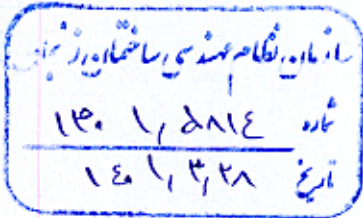 سازمان نظام مهندسی ساختمان زنجان
شماره ۱۳۰۱,۵۸۱۴
تاریخ ۱۴۰۱,۳,۲۸